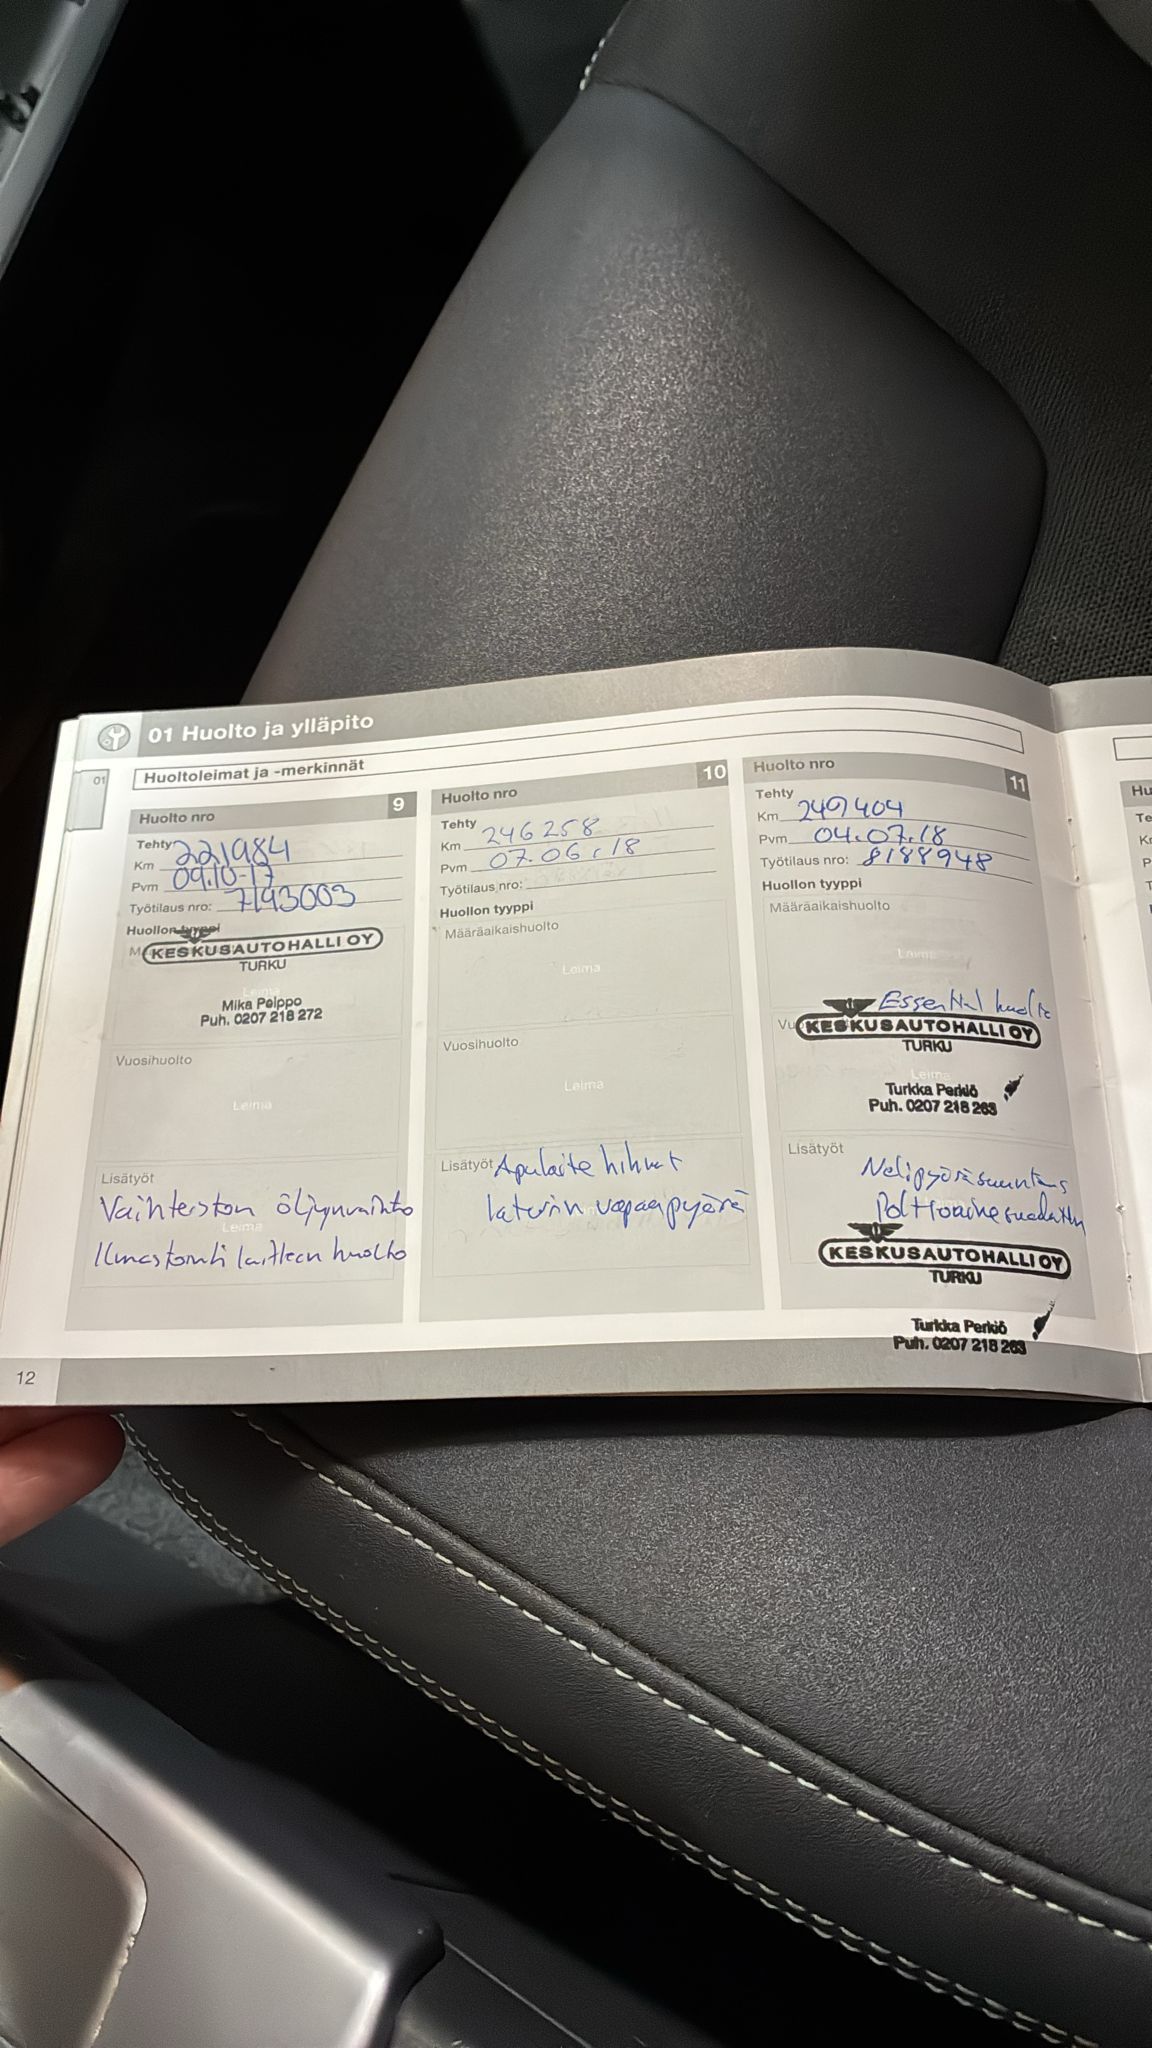 01 Huolto ja ylläpito
01
Huoltoleimat ja -merkinnät
Huolto nro 9
Tehty
Km 221984
Pvm 09.10-17
Työtilaus nro: 7193003
Huollon tyyppi
KESKUSAUTOHALLI OY
TURKU
Leima
Mika Polppo
Puh. 0207 218 272
Vuosihuolto
Leima
Lisätyöt
Vaihteiston öljynvaihto
Leima
Ilmastointi laitteen huolto
Huolto nro 10
Tehty
Km 246258
Pvm 07.06.18
Työtilaus nro:
Huollon tyyppi
Määräaikaishuolto
Leima
Vuosihuolto
Leima
Lisätyöt Apulaite hihnat
laturin vapaapyörä
Huolto nro 11
Tehty
Km 249404
Pvm 04.07.18
Työtilaus nro: 8188948
Huollon tyyppi
Määräaikaishuolto
Leima
Essential huolto
KESKUSAUTOHALLI OY
TURKU
Leima
Turkka Perkiö
Puh. 0207 218 263
Lisätyöt
Nelipyöräsuuntaus
Polttoainesuodatin
KESKUSAUTOHALLI OY
TURKU
Turkka Perkiö
Puh. 0207 218 263
12
Hu
Te